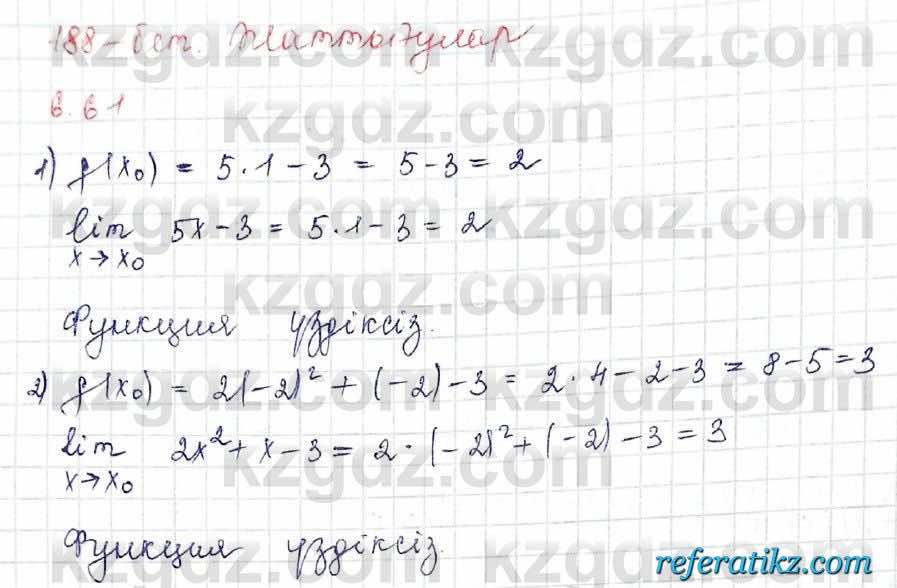 188-бет. Жаттығулар
6.61
1) f(x₀) = 5·1-3 = 5-3 = 2
lim 5x-3 = 5·1-3 = 2
x→x₀
Функция үздіксіз.
2) f(x₀) = 2(-2)² + (-2)-3 = 2·4-2-3 = 8-5=3
lim 2x²+x-3 = 2·(-2)²+(-2)-3=3
x→x₀
Функция үздіксіз.
kzgdz.com
referatikz.com